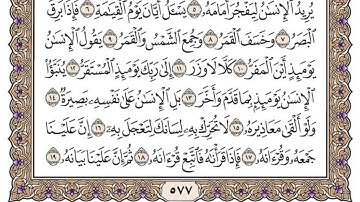 يُرِيدُ ٱلْإِنسَٰنُ لِيَفْجُرَ أَمَامَهُۥ ۝٥ يَسْـَٔلُ أَيَّانَ يَوْمُ ٱلْقِيَٰمَةِ ۝٦ فَإِذَا بَرِقَ
ٱلْبَصَرُ ۝٧ وَخَسَفَ ٱلْقَمَرُ ۝٨ وَجُمِعَ ٱلشَّمْسُ وَٱلْقَمَرُ ۝٩ يَقُولُ ٱلْإِنسَٰنُ
يَوْمَئِذٍ أَيْنَ ٱلْمَفَرُّ ۝١٠ كَلَّا لَا وَزَرَ ۝١١ إِلَىٰ رَبِّكَ يَوْمَئِذٍ ٱلْمُسْتَقَرُّ ۝١٢ يُنَبَّؤُاْ
ٱلْإِنسَٰنُ يَوْمَئِذٍۭ بِمَا قَدَّمَ وَأَخَّرَ ۝١٣ بَلِ ٱلْإِنسَٰنُ عَلَىٰ نَفْسِهِۦ بَصِيرَةٌ ۝١٤
وَلَوْ أَلْقَىٰ مَعَاذِيرَهُۥ ۝١٥ لَا تُحَرِّكْ بِهِۦ لِسَانَكَ لِتَعْجَلَ بِهِۦٓ ۝١٦ إِنَّ عَلَيْنَا
جَمْعَهُۥ وَقُرْءَانَهُۥ ۝١٧ فَإِذَا قَرَأْنَٰهُ فَٱتَّبِعْ قُرْءَانَهُۥ ۝١٨ ثُمَّ إِنَّ عَلَيْنَا بَيَانَهُۥ ۝١٩
٥٧٧